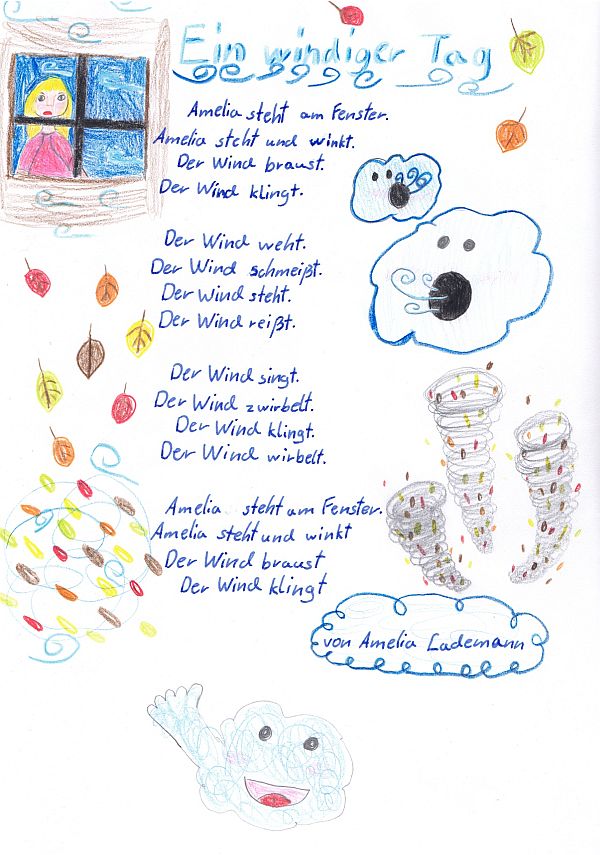 Ein windiger Tag
Amelia steht am Fenster.
Amelia steht und winkt.
Der Wind braust.
Der Wind klingt.
Der Wind weht.
Der Wind schmeißt.
Der Wind steht.
Der Wind reißt.
Der Wind singt.
Der Wind zwirbelt.
Der Wind klingt.
Der Wind wirbelt.
Amelia steht am Fenster.
Amelia steht und winkt
Der Wind braust
Der Wind klingt
von Amelia Lademann